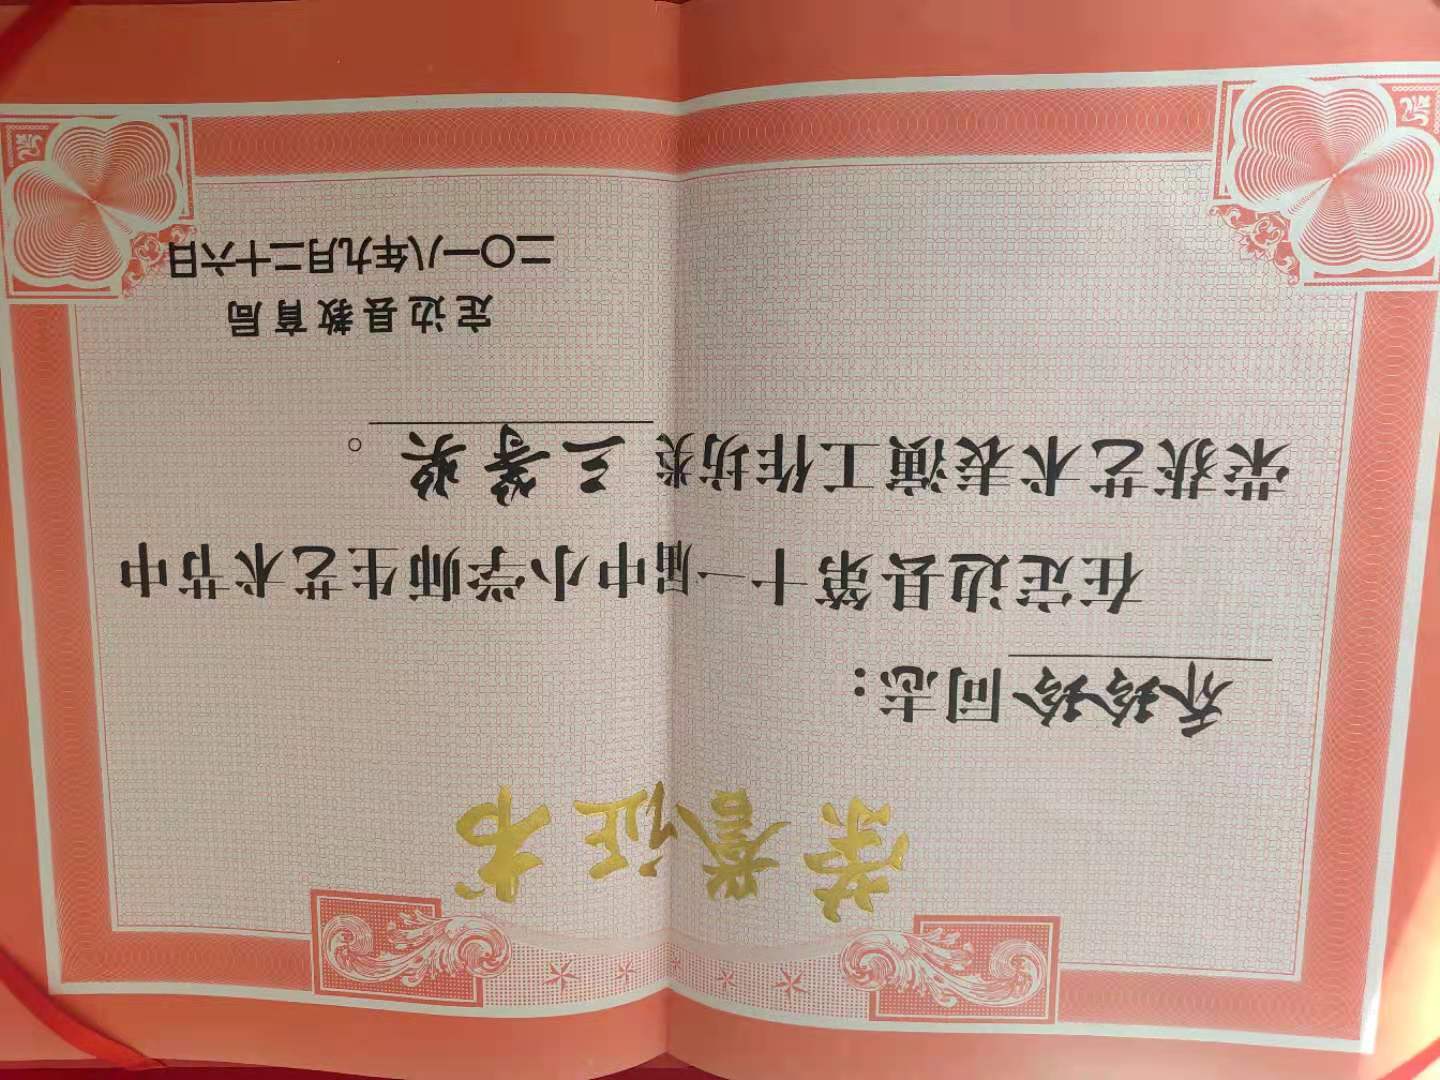 荣誉证书
乔玲玲同志：
在定边县第十一届中小学师生艺术节中
荣获艺术表演工作坊类三等奖。
定边县教育局
二〇一八年九月二十六日